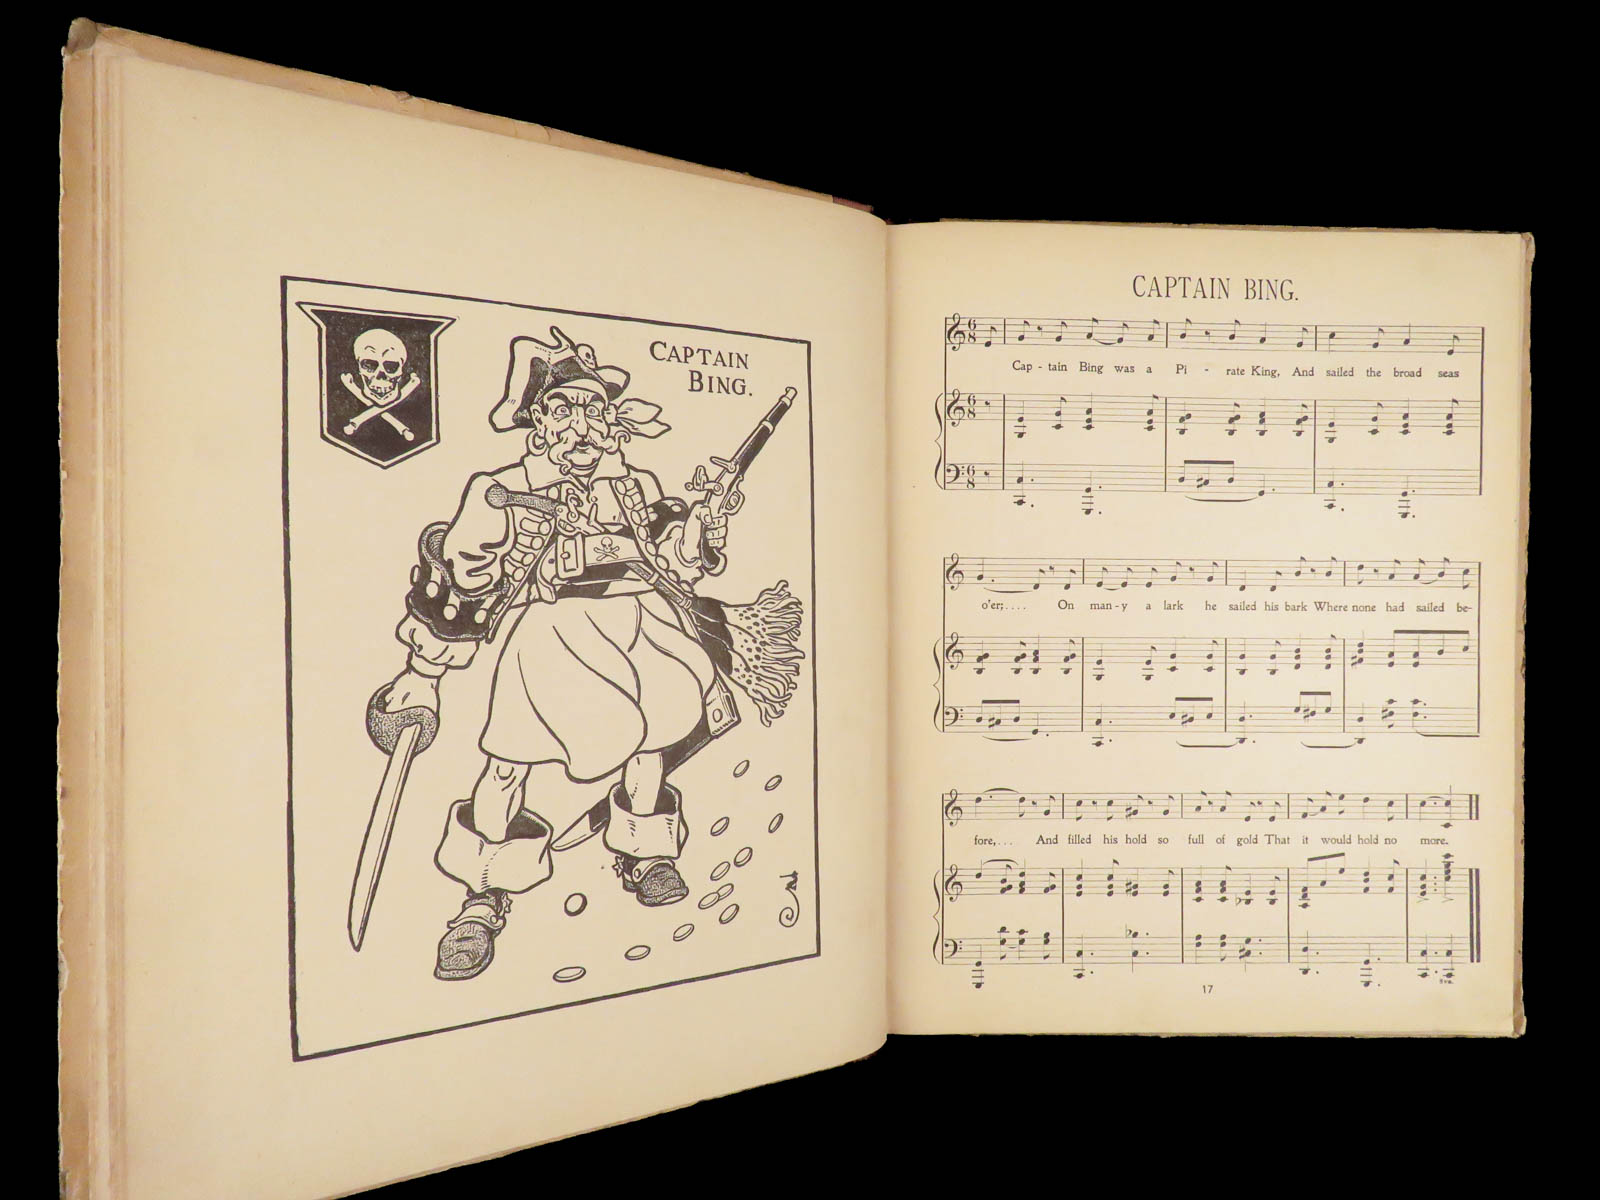 CAPTAIN
BING.
CAPTAIN BING.
Cap - tain Bing was a Pi - rate King, And sailed the broad seas
o'er;.... On man - y a lark he sailed his bark Where none had sailed be-
fore,... And filled his hold so full of gold That it would hold no more.
8va.
17